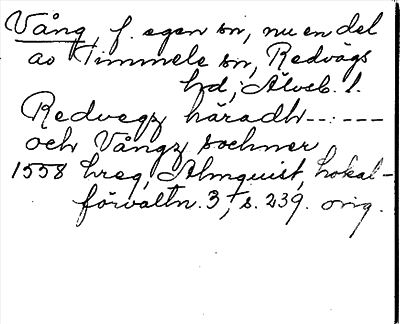 Vång, f. egen sn, nu en del
av Timmele sn, Redvägs
hd, Älvsb. l.
Redvegz häradh -- : ---
och Vångz sochner
1558 hreg, Almquist, Lokal-
förvaltn. 3:, s. 239. orig.